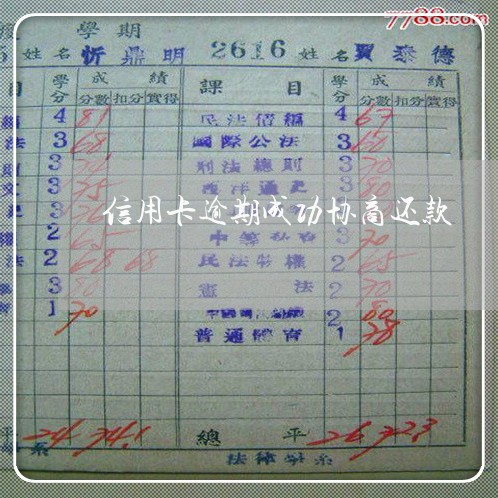 7788.com
學期
姓名 忻鼎明 2616 姓名 賈泰德
目 學分 成績 課目 學分 成績
分數 扣分 實得 分數 扣分 實得
4 81 民法債編 4 67
法 3 68 國際公法 3 60
3 刑法總則 3 70
3 75 西洋通史 3 80
信用卡逾期成功协商还款
2 65 3 70
法 2 68 68 民法物權 2 65
3 80 憲法 2 70
1 70 2 80
普通體育 1 78
平 24 74.1 總平 26 72.3
系 法律學系